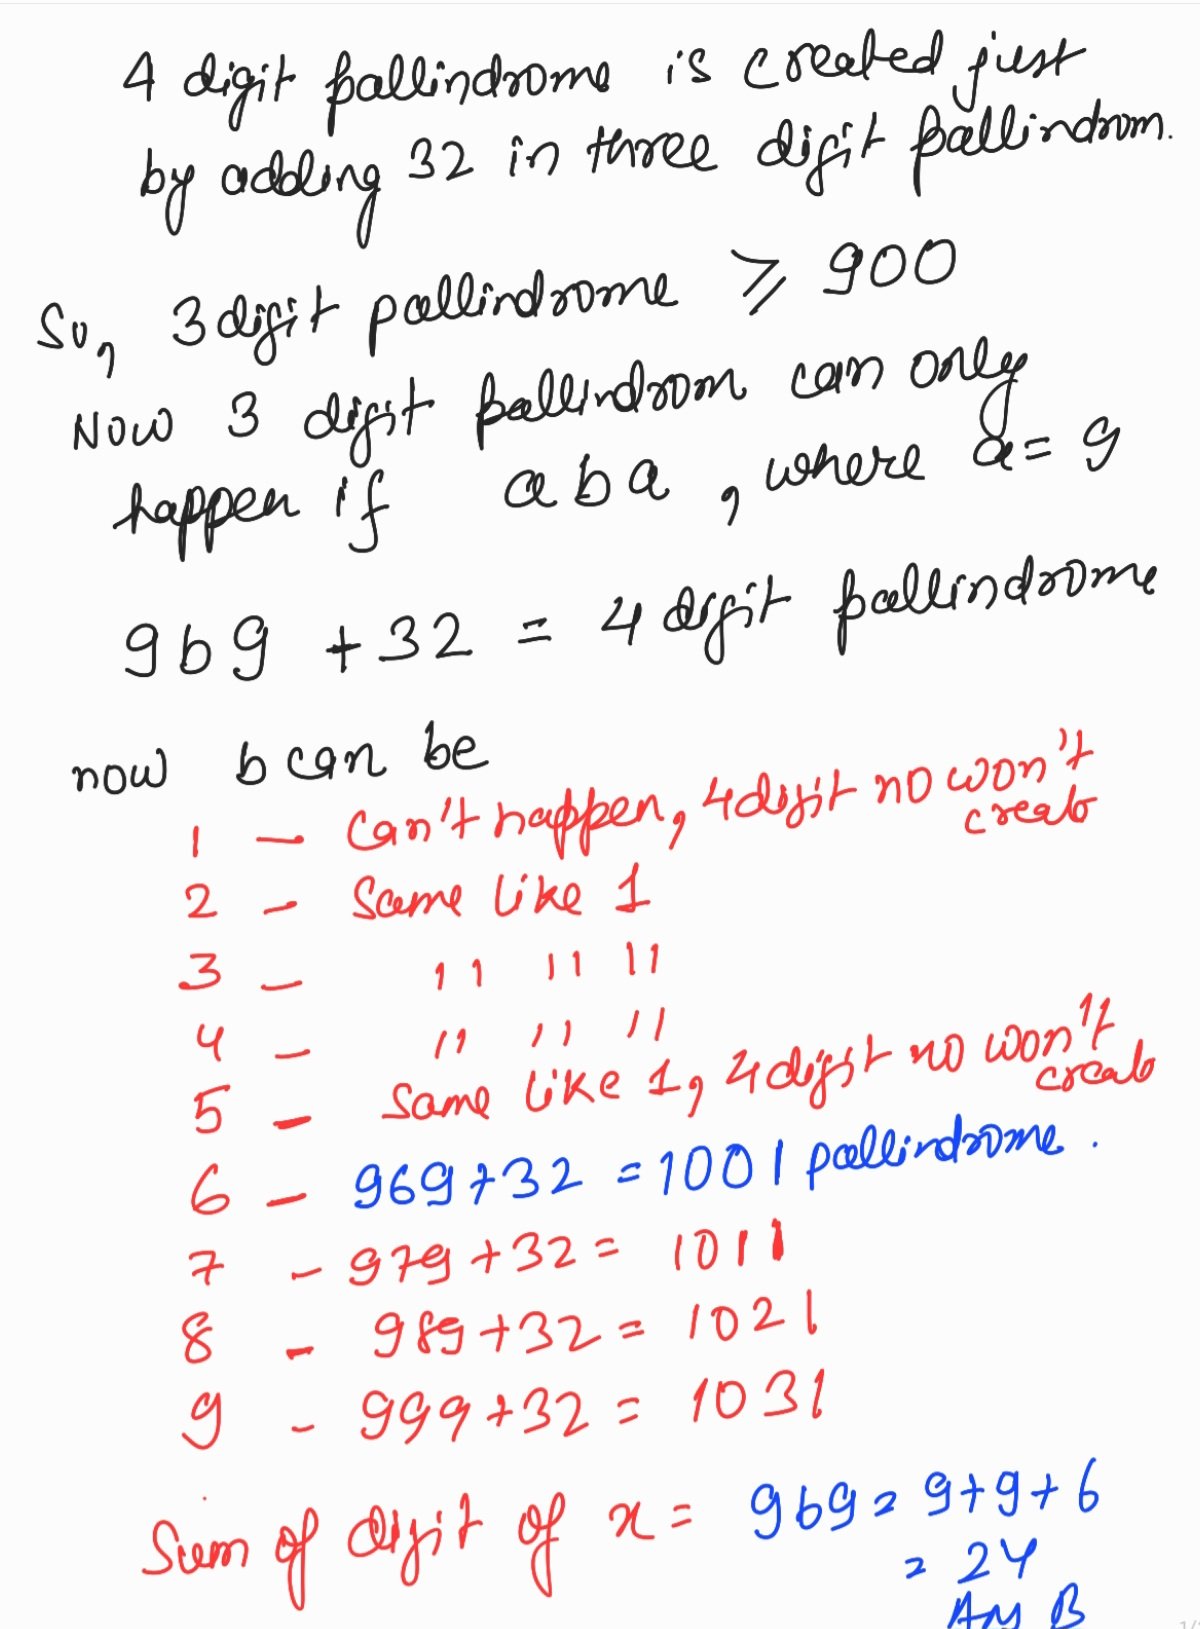 4 digit pallindrome is created just
by adding 32 in three digit pallindrom.
So, 3 digit pallindrome ⩾ 900
Now 3 digit pallindrom can only
happen if aba, where a = 9
9b9 + 32 = 4 digit pallindrome
now b can be
1 - Can't happen, 4 digit no won't
create
2 - Same like 1
3 - " " "
4 - " " "
5 - Same like 1, 4 digit no won't
create
6 - 969+32 = 1001 pallindrome.
7 - 979+32 = 1011
8 - 989+32 = 1021
9 - 999+32 = 1031
Sum of digit of x = 969 = 9+9+6
= 24
Ans B